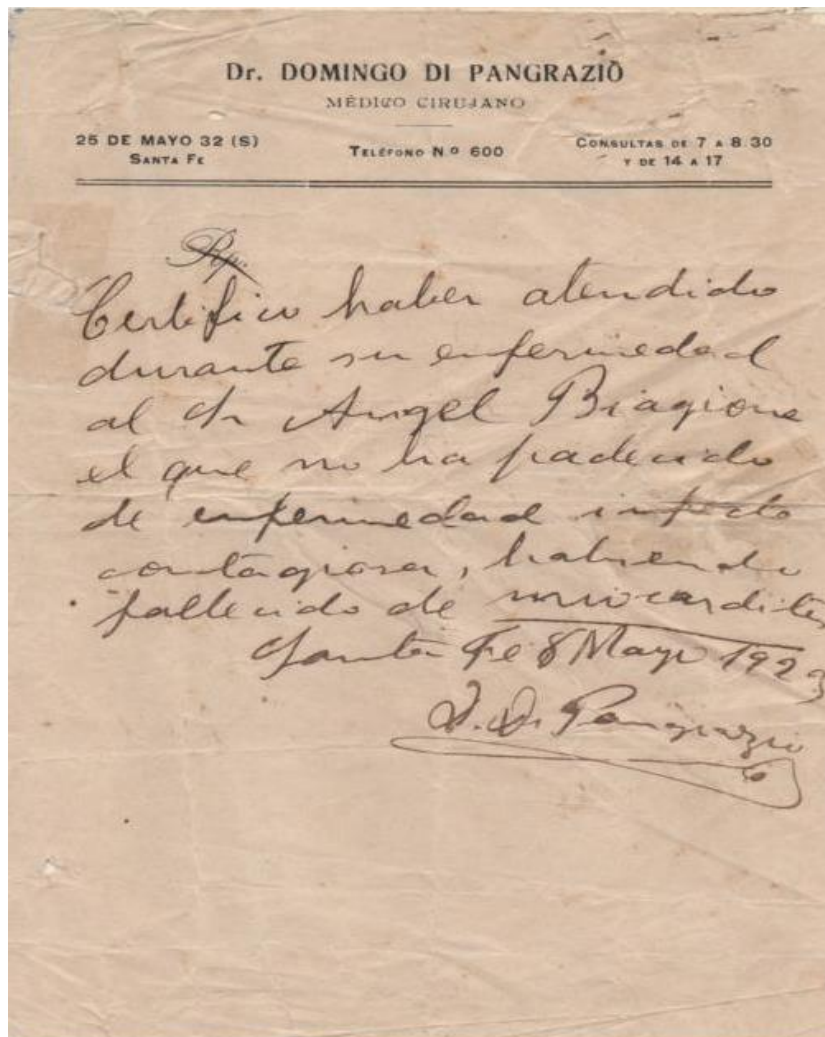 Dr. DOMINGO DI PANGRAZIO
MÉDICO CIRUJANO
25 DE MAYO 32 (S)
SANTA FE
TELÉFONO N.º 600
CONSULTAS DE 7 A 8.30
Y DE 14 A 17
Rp.
Certifico haber atendido
durante su enfermedad
al Sr Angel Biagione
el que no ha padecido
de enfermedad infecto
contagiosa, habiendo
fallecido de miocarditis
Santa Fe 8 Mayo 1923
D. Di Pangrazio